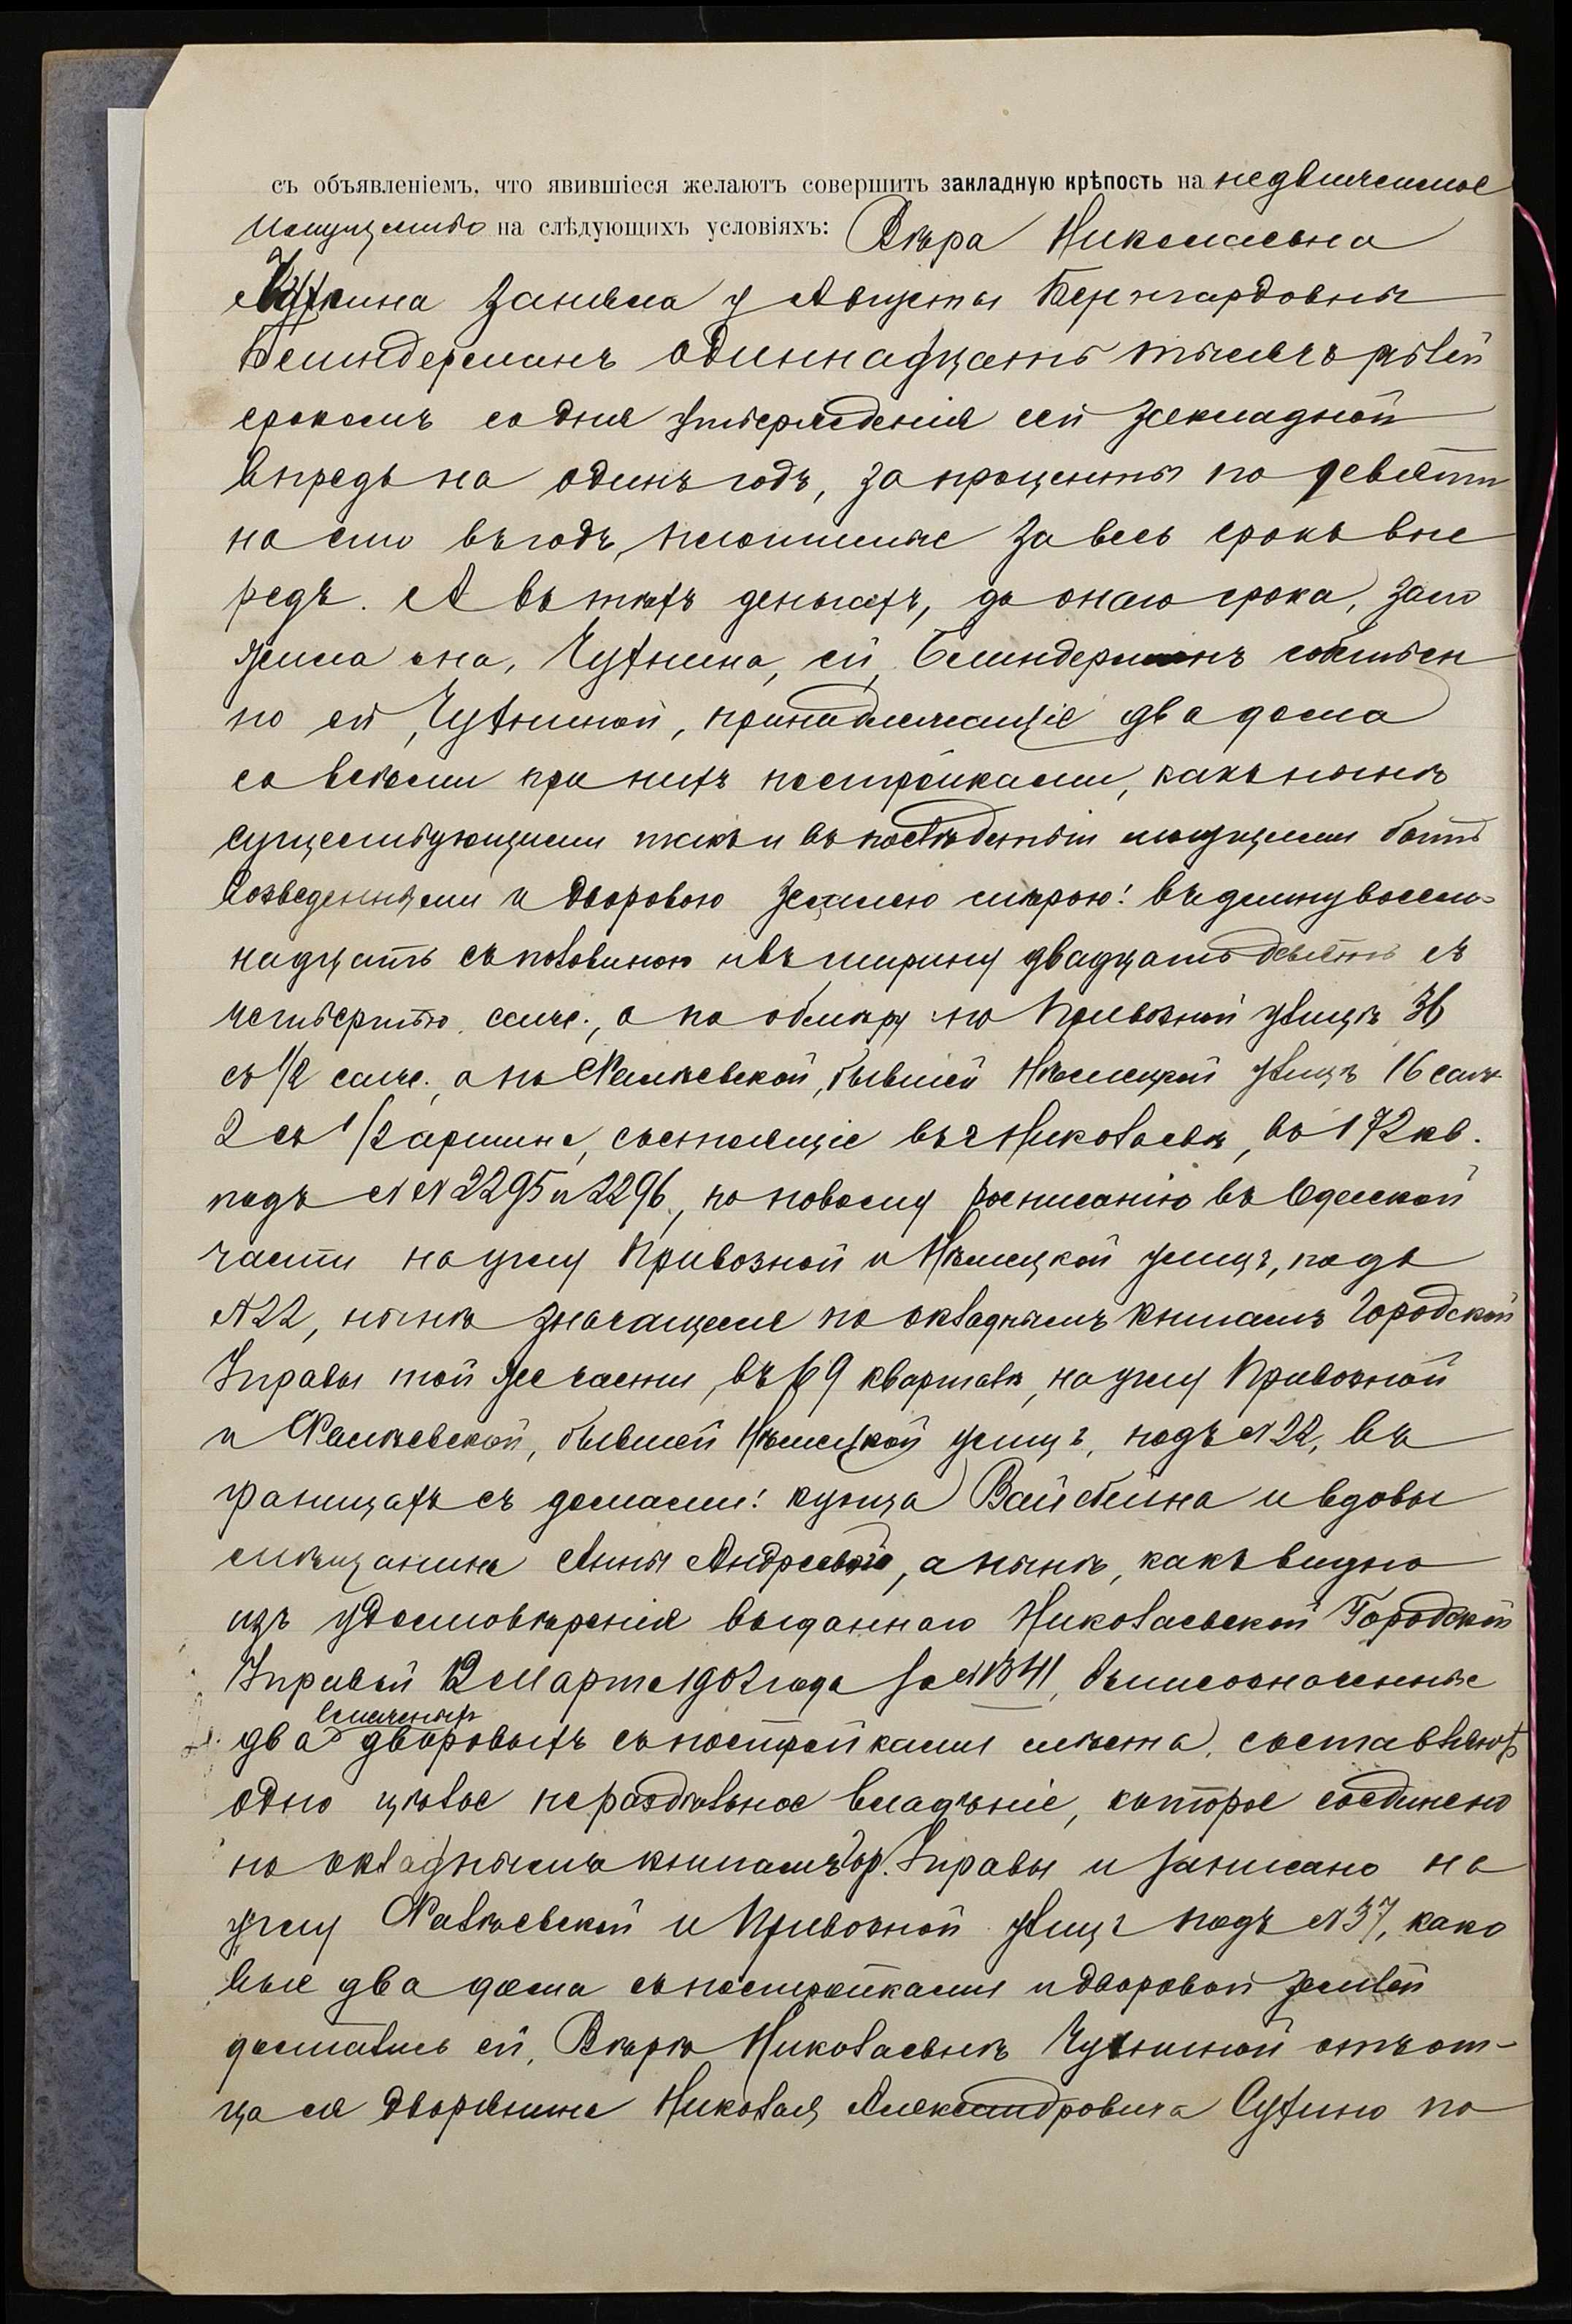 съ объявленіемъ, что явившіеся желаютъ совершить закладную крѣпость на недвижимое
имущество на слѣдующихъ условіяхъ: Вѣра Николаевна
Чухнина заняла у Августы Бернгардовны
Блиндерманъ одиннадцать тысячъ рублей
срокомъ со дня утвержденія сей закладной
впредь на одинъ годъ, за проценты по девяти
на сто въ годъ, платимые за весь срокъ впе
редъ. А въ тѣхъ деньгахъ, до онаго срока, зало
жила она, Чухнина, ей, Блиндерманъ собствен
но ей, Чухниной, принадлежащіе два дома
со всѣми при нихъ постройками, какъ нынѣ
существующими такъ и въ послѣдствіи могущими быть
возведенными и дворовою землею мѣрою: въ длину восем-
надцать съ половиною и въ ширину двадцать девять съ
четвертью саж., а по обмѣру по Привозной улицѣ 36
съ 1/2 саж., а по Фалѣевской, бывшей Нѣмецкой улицѣ 16 саж
2 съ 1/2 аршина, состоящіе въ г Николаевѣ, въ 172 кв.
подъ №№ 2295 и 2296, по новому росписанію въ Одесской
части на углу Привозной и Нѣмецкой улицъ, подъ
№ 22, нынѣ значащееся по окладнымъ книгамъ Городской
Управы той же части, въ 69 кварталѣ, на углу Привозной
и Фалѣевской, бывшей Нѣмецкой улицъ, подъ № 22, въ
границахъ съ домами: купца Вайсбейна и вдовы
мѣщанина Анны Андреевой, а нынѣ, какъ видно
изъ удостовѣренія выданнаго Николаевской Городской
Управой 12 Марта 1902 года за № 1341, вышеозначенные
смежныхъ
два дворовыхъ съ постройками мѣста, составляютъ
одно цѣлое нераздѣльное владѣніе, которое соединено
по окладнымъ книгамъ Гор. Управы и записано на
углу Фалѣевской и Привозной улицъ подъ № 37, како
вые два дома съ постройками и дворовой землей
достались ей, Вѣрѣ Николаевнѣ Чухниной отъ от-
ца ея дворянина Николая Александровича Сухино по